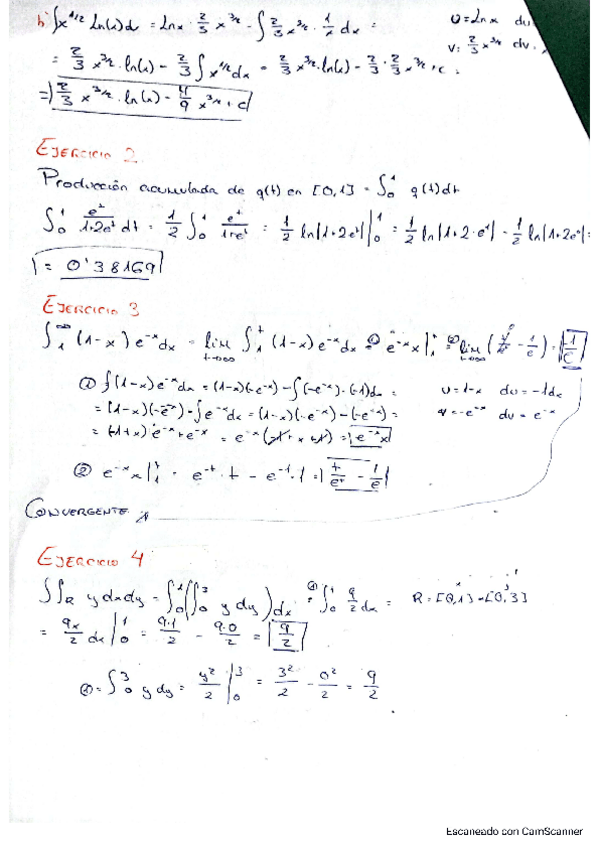 b) ∫x^1/2 ln(x)d = lnx · 2/3 x^3/2 - ∫ 2/3 x^3/2 · 1/x dx = U = Lnx du
V: 2/3 x^3/2 dv
= 2/3 x^3/2 · ln(x) - 2/3 ∫ x^1/2 dx = 2/3 x^3/2 · ln(x) - 2/3 · 2/3 x^3/2 + c
=> 2/3 x^3/2 · ln(x) - 4/9 x^3/2 + c
EJERCICIO 2
Producción acumulada de q(t) en [0,1] = ∫_0^1 q(t)dt
∫_0^1 e^t/1+2e^t dt = 1/2 ∫_0^1 e^t/1+e^t = 1/2 ln|1+2e^t| |_0^1 = 1/2 ln|1+2·e^1| - 1/2 ln|1+2e^0| =
= 0'38169
EJERCICIO 3
∫_1^∞ (1-x) e^-x dx = lim t→∞ ∫_1^t (1-x) e^-x dx = ① e^-x x |_1^t = ② lim t→∞ ( - 1/e) =
① ∫(1-x) e^-x dx = (1-x)(-e^-x) - ∫(-e^-x)·(-1)dx = U = 1-x du = -1dx
= (1-x)(-e^-x) - ∫e^-x dx = (1-x)(-e^-x) - (-e^-x) = v = -e^-x dv = e^-x
= (-1+x) e^-x + e^-x = e^-x (-1 + x + 1) = e^-x x
② e^-x x |_1^t = e^-t · t - e^-1 · 1 = t/e^t - 1/e
CONVERGENTE
EJERCICIO 4
∫∫_R y dxdy = ∫_0^1 (∫_0^3 y dy) dx = ∫_0^1 9/2 dx = R = [0,1]×[0,3]
= 9x/2 dx |_0^1 = 9·1/2 - 9·0/2 = 9/2
= ∫_0^3 y dy = y²/2 |_0^3 = 3²/2 - 0²/2 = 9/2
Escaneado con CamScanner